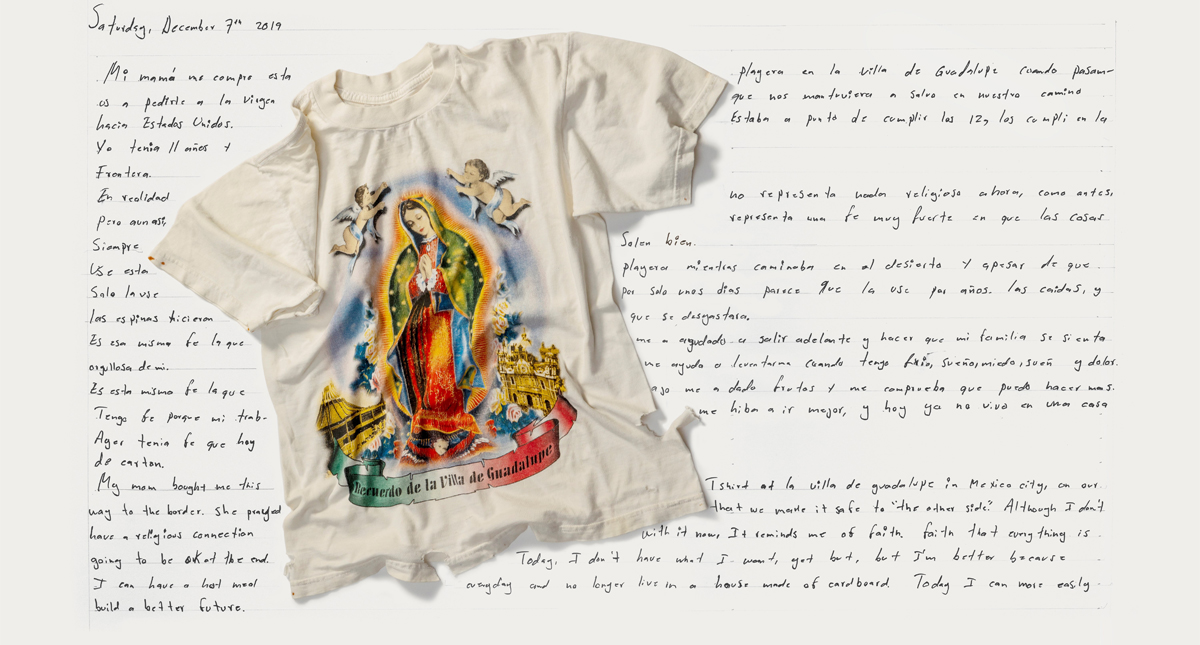 Saturday, December 7th 2019
Mi mamá me compro esta playera en la villa de Guadalupe cuando pasam-
os a pedirle a la virgen que nos mantuviera a salvo en nuestro camino
hacia Estados Unidos. Estaba a punto de cumplir los 12, los cumpli en la
Yo tenia 11 años y
Frontera.
En realidad no representa nada religioso ahora, como antes,
pero aun asi, representa una fe muy fuerte en que las cosas
Siempre Salen bien.
Use esta playera mientras caminaba en el desierto y apesar de que
Solo la use por solo unos dias parece que la use por años. las caidas, y
las espinas hicieron que se desgastara.
Es esa misma fe la que me a ayudado a salir adelante y hacer que mi familia se sienta
orgullosa de mi. me ayuda a levantarme cuando tengo frio, sueño, miedo, sueñ y dolor.
Es esta misma fe la que ajo me a dado frutos y me comprueba que puedo hacer mas.
Tengo fe porque mi trab- me hiba a ir mejor, y hoy ya no vivo en una casa
Ayer tenia fe que hoy
de carton.
My mom bought me this Tshirt at la villa de guadalupe in Mexico city, on our
way to the border. She prayed that we made it safe to "the other side." Although I don't
have a religious connection with it now, It reminds me of faith. faith that everything is
going to be ok at the end. Today, I don't have what I want, yet but, but I'm better because
I can have a hot meal everyday and no longer live in a house made of cardboard. Today I can more easily
build a better future.
Recuerdo de la Villa de Guadalupe